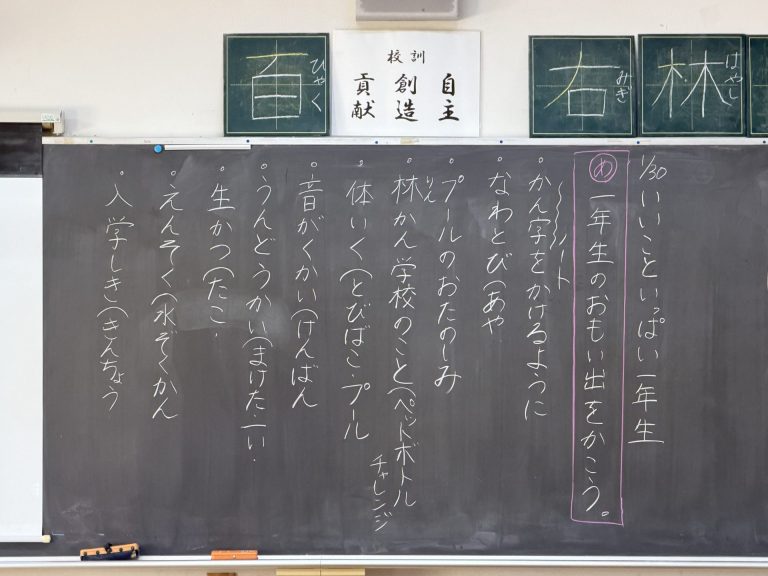 百
ひゃく
校訓
自主
創造
貢献
右
みぎ
林
はやし
1/30 いいこといっぱい一年生
め 一年生のおもい出をかこう。
シート
・かん字をかけるように
・なわとび(あや
・プールのおたのしみ
・林かん学校のこと(ペットボトル
りん
チャレンジ
・体いく(とびばこ・プール
・音がくかい(けんばん
・うんどうかい(まけた・一い・
・生かつ(たこ・
・えんそく(水ぞくかん
・入学しき(きんちょう